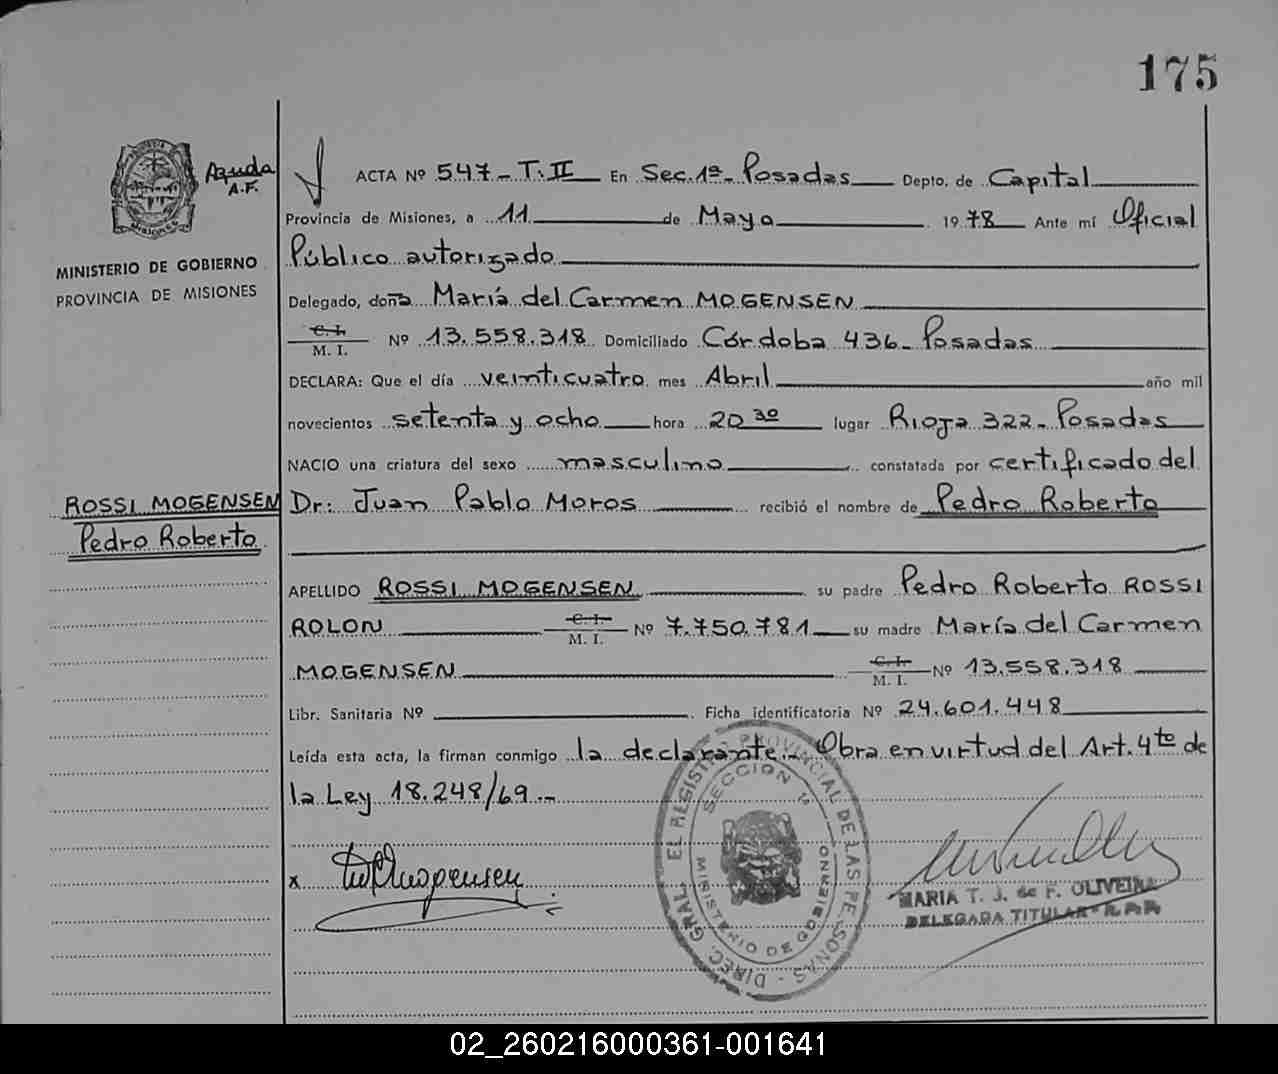 175
Aguda
A.F.
MINISTERIO DE GOBIERNO
PROVINCIA DE MISIONES
ACTA Nº 547-T.II En Sec.1ª-Posadas Depto. de Capital
Provincia de Misiones, a 11 de Mayo 1978 Ante mí Oficial
Público autorizado
Delegado, doña María del Carmen MOGENSEN
C. I.
M. I. Nº 13.558.318 Domiciliado Córdoba 436-Posadas
DECLARA: Que el día veinticuatro mes Abril año mil
novecientos setenta y ocho hora 20 30 lugar Rioja 322-Posadas
NACIO una criatura del sexo masculino constatada por certificado del
ROSSI MOGENSEN
Pedro Roberto
Dr: Juan Pablo Moros recibió el nombre de Pedro Roberto
APELLIDO ROSSI MOGENSEN su padre Pedro Roberto ROSSI
ROLON C. I. M. I. Nº 7.750.781 su madre María del Carmen
MOGENSEN C. I. M. I. Nº 13.558.318
Libr. Sanitaria Nº Ficha identificatoria Nº 24.601.448
Leída esta acta, la firman conmigo la declarante.- Obra en virtud del Art. 4to de
la Ley 18.248/69.-
x
DIREC. GRAL. EL REGISTRO PROVINCIAL DE LAS PERSONAS
SECCION 1ª
MINISTERIO DE GOBIERNO
MARIA T. J. de F. OLIVEIRA
DELEGADA TITULAR
02_260216000361-001641